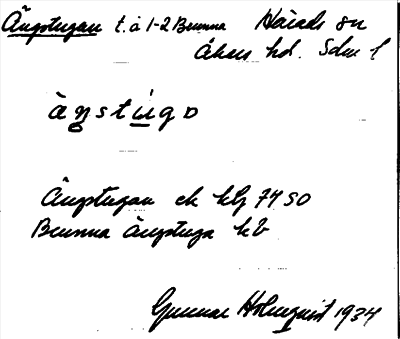 Ängstugan t. å 1-2 Brunna Härads sn
Åkers hd. Sdm l
ä̀ŋstùgɒ
Ängstugan ek kbl 74 SO
Brunna Ängstuga kb
Gunnar Holmquist 1934